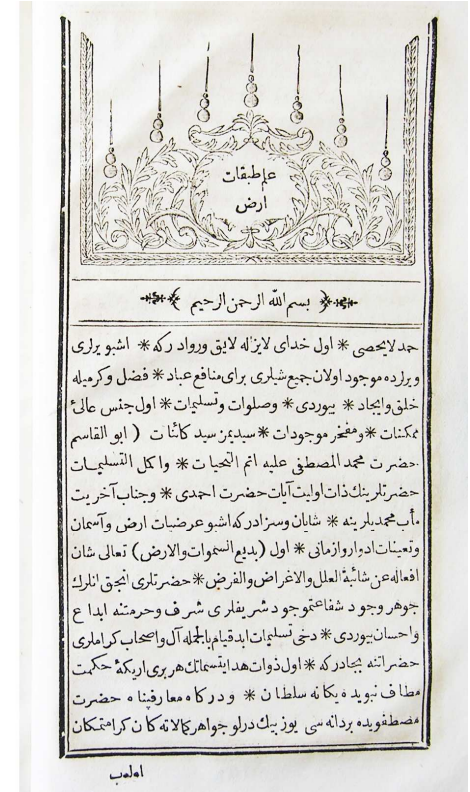 علم طبقات
ارض
بسم الله الرحمن الرحيم
حمد لايحصى * اول خداى لايزاله لايق وروادركه * اشبو يرلرى
ويرلرده موجود اولان جميع شيلرى براى منافع عباد * فضل وكرميله
خلق وايجاد * بيوردى * وصلوات وتسليمات * اول جنس عالئ
ممكنات * ومفخر موجودات * سيديمز سيد كائنات ( ابو القاسم
حضرت محمد المصطفى عليه اتم التحيات * واكمل التسليمات
حضرتلرينك ذات اوليت آيات حضرت احمدى * وجناب آخريت
مآب محمديلرينه * شايان وسزادركه اشبو عرضيات ارض وآسمان
وتعينات ادوار وازمانى * اول (بديع السموات والارض) تعالى شان
افعاله عن شائبة العلل والاغراض والفرض * حضرتلرى انجق انلرك
جوهر وجود شفاعتموجود شريفلرى شرف وحرمتنه ابداع
واحسان بيوردى * دخى تسليمات ابدقيام بالجمله آل واصحاب كراملرى
حضراتنه بجادركه * اول ذوات هدايتسماتك هر برى اريكۀ حكمت
مطاف نبويده يكانه سلطان * ودركاه معارفپناه حضرت
مصطفويده بردانه سى يوز بيك درلو جواهر كمالاته كان كرامتمكان
اولوب